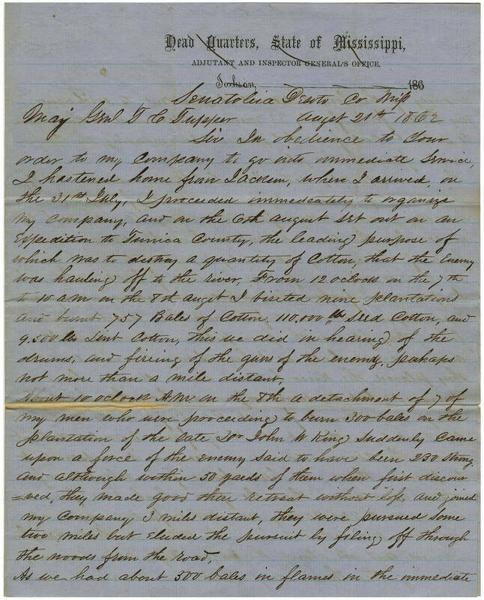 Head Quarters, State of Mississippi,
ADJUTANT AND INSPECTOR GENERAL'S OFFICE.
Jackson, 186
Senatobia Desoto Co Miss
Augst 21st 1862
Maj Genl T C Tupper
Sir In obedience to your
order to my Company to go into immediate Service,
I hastened home from Jackson, where I arrived, on
the 31st July, I proceeded immediately to organize
my company, and on the 6th august set out on an
Expedition to Tunica County, the leading purpose of
which was to destroy a quantity of Cotton, that the Enemy
was hauling off to the river, From 12 oclock on the 7th
to 10 A M on the 8th augst I visited nine plantations
and burnt 757 Bales of Cotton 110,000 lb Seed Cotton, and
9,500 lbs Lint Cotton, this we did in hearing of the
drums, and fireing of the guns of the enemy, perhaps
not more than a mile distant,
About 10 oclock A M on the 8th a detachment of 7 of
my men who were proceeding to burn 300 bales on the
plantation of the late John W King Suddenly came
upon a force of the enemy said to have been 230 strong
and although within 50 yards of them when first discov
=ered, they made good their retreat without loss, and joined
my Company 3 miles distant, they were pursued some
two miles but eluded the pursuit by fileing off through
the woods from the road,
As we had about 500 bales in flames in the immediate